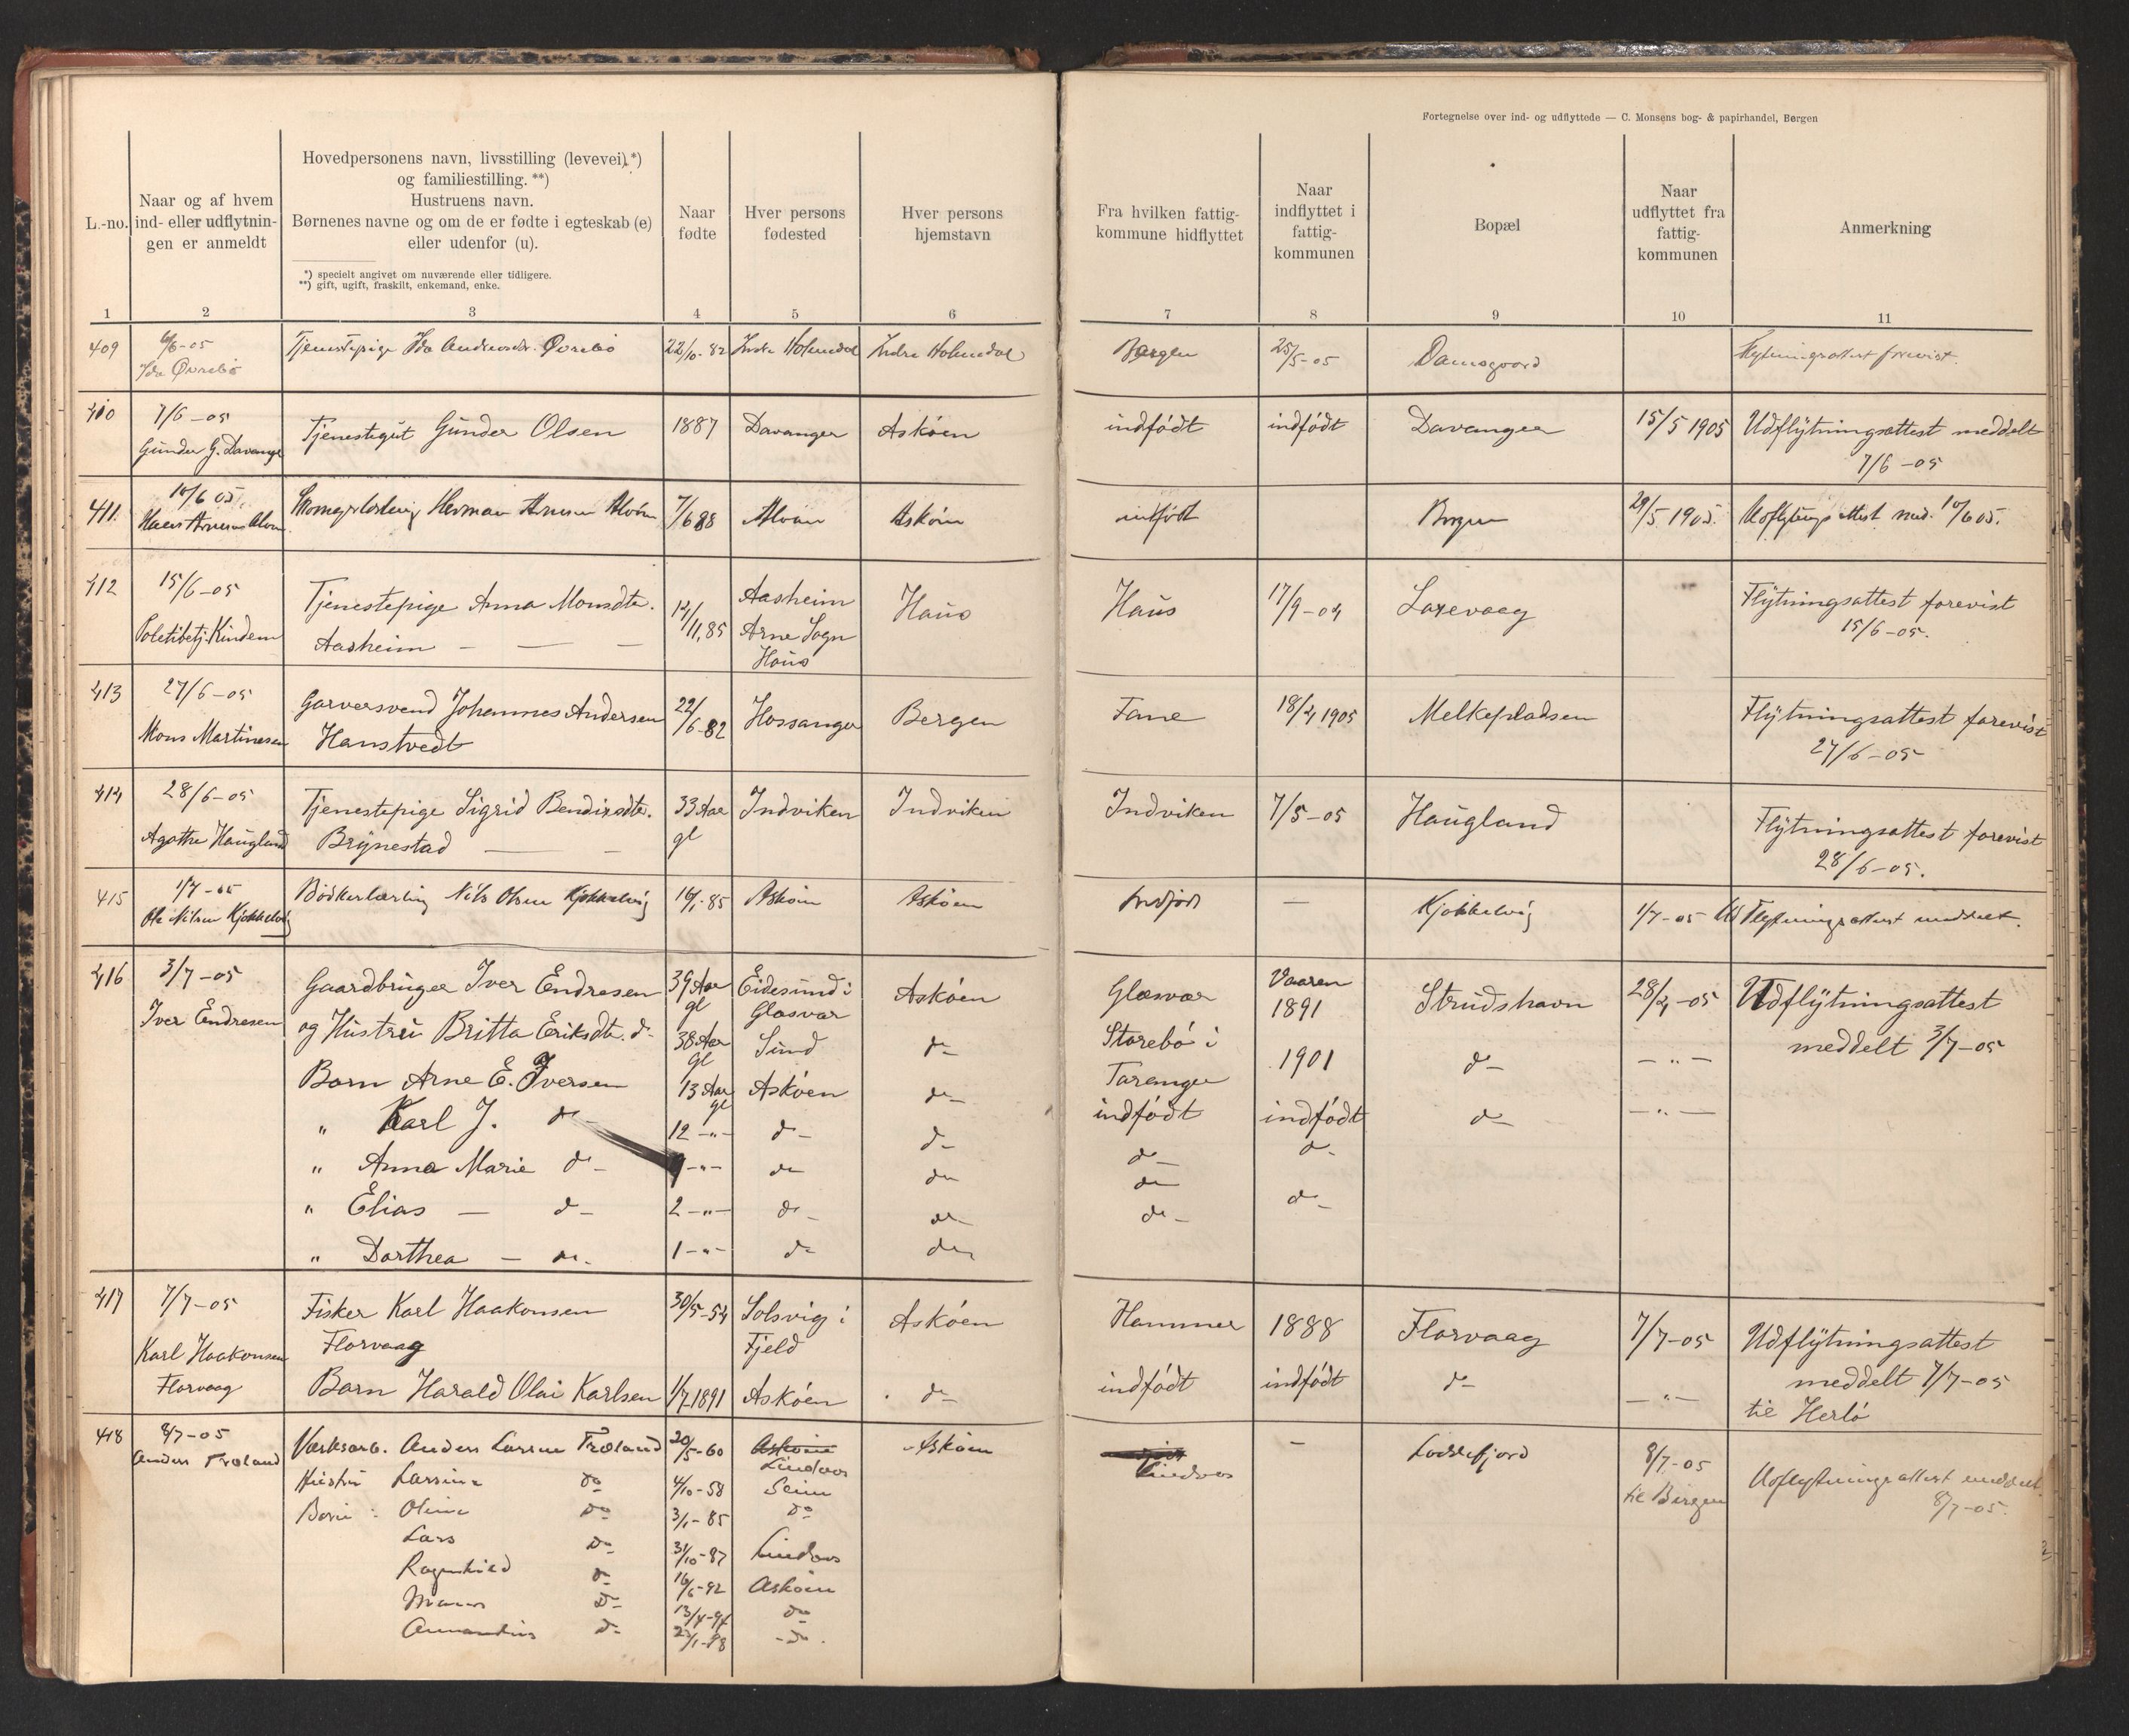 Fortegnelse over ind- og udflyttede — C. Monsens bog- & papirhandel, Bergen
L.-no.
Naar og af hvem
ind- eller udflytnin-
gen er anmeldt
Hovedpersonens navn, livsstilling (levevei),*)
og familiestilling. **)
Hustruens navn.
Børnenes navne og om de er fødte i egteskab (e)
eller udenfor (u).
*) specielt angivet om nuværende eller tidligere.
**) gift, ugift, fraskilt, enkemand, enke.
Naar
fødte
Hver persons
fødested
Hver persons
hjemstavn
Fra hvilken fattig-
kommune hidflyttet
Naar
indflyttet i
fattig-
kommunen
Bopæl
Naar
udflyttet fra
fattig-
kommunen
Anmerkning
1 2 3 4 5 6 7 8 9 10 11
409 6/6-05 Tjenestepige Ida Andreasdr. Øvrebø 22/10-82 Indre Holmedal Indre Holmedal Bergen 25/5-05 Damsgaard Flytningsattest forevist.
Ida Øvrebø
410 7/6-05 Tjenestegut Gunder Olsen 1887 Davanger Askøen indfödt indfödt Davanger 15/5 1905 Udflytningsattest meddelt
Gunder G. Davange 7/6-05
411. 10/6 05. Herman Arnesen Alvøen 7/6 88 Alvøen Askøen indfödt Bergen 29/5 1905. Udflytningsattest med. 10/6 05.
412 15/6-05 Tjenestepige Anna Monsdtr. 14/11,85 Aasheim Haus Haus 17/9-04 Laxevaag Flytningsattest forevist
Politibetj. Kindem Aasheim — — — Arne Sogn 15/6-05.
Haus
413 27/6-05 Garversvend Johannes Andersen 22/6-82 Hossanger Bergen Fane 18/4 1905 Melkepladsen Flytningsattest forevist
Mons Martinesen Hanstvedt 27/6-05
414 28/6-05 Tjenestepige Sigrid Bendixdtr. 33 Aar Indviken Indviken Indviken 7/5-05 Haugland Flytningsattest forevist
Agathe Haugland Brynestad — — gl 28/6-05.
415 1/7-05 Bødkerlærling Nils Olsen Kjøkkelvig 16/1-85 Askøen Askøen Indfödt — Kjøkkelvig 1/7-05 Ud Flytningsattest meddelt.
Ole Nilsen Kjøkkelvig
416 3/7-05 Gaardbruger Iver Endresen 39 Aar gl Eidesund i Askøen Glæsvær Vaaren 1891 Strudshavn 28/4-05 Udflytningsattest
Iver Endresen Glæsvær
og Hustru Britta Eriksdtr. d- 38 Aar gl Sund d- Storebø i 1901 d- — " — meddelt 3/7-05
Barn Arne E. Iversen 13 Aar gl Askøen d- Taranger
indfödt indfödt d- — " —
" Karl J. d- 12 — " — d- d- d- d-
" Anna Marie d- 9 — " — d- d- d-
" Elias — d- 2 — " — d- d- d- d-
" Dorthea — d- 1 — " — d- d-
417 7/7-05 Fisker Karl Haakonsen 30/5-54 Solsvig i Askøen Hammer 1888 Florvaag 7/7-05 Udflytningsattest
Karl Haakonsen Florvaag Fjeld
Florvaag Barn Harald Olai Karlsen 1/7 1891 Askøen d- indfödt indfödt d- — " — meddelt 7/7-05
til Herlø
418 8/7-05 Værksarb. Anders Larsen Træland 20/5-60 Askøen Askøen Lindaas — Loddefjord 8/7-05 Udflytningsattest meddelt
Anders Træland Lindaas til Bergen 8/7-05.
Hustru Larsine do 4/10-58 Seim
Børn: Oline do 3/1-85 do
Lars do 31/10-87 Lindaas
Ragnhild d- 16/6-92 Askøen
d- 13/4-94 do
d- 23/1-98 - do.